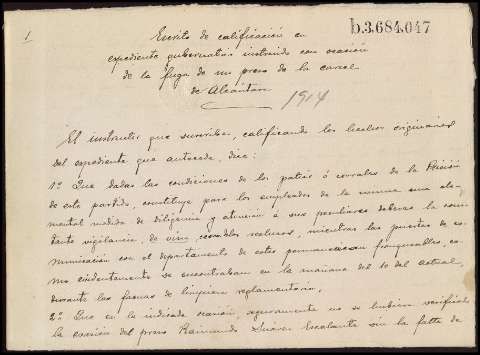 1
b.3.684.047
Escrito de calificación en
expediente gubernativo instruido con ocasión
de la fuga de un preso de la carcel
de Alcántara
1914
El instructor que suscribe, calificando los hechos originarios
del expediente que antecede, dice:
1º Que dadas las condiciones de los patios ó corrales de la Prisión
de este partido, constituye para los empleados de la misma una ele-
mental medida de diligencia y atención á sus peculiares deberes la cons-
tante vigilancia, de reclusos, mientras las puertas de co-
municación con el departamento de estos permanezcan franqueables, co-
mo evidentemente se encontraban en la mañana del 10 del actual,
durante las faenas de limpieza reglamentaria.
2º Que en la indicada ocasión, seguramente no se hubiera verificado
la evasión del preso Raimundo Escalante sin la falta de